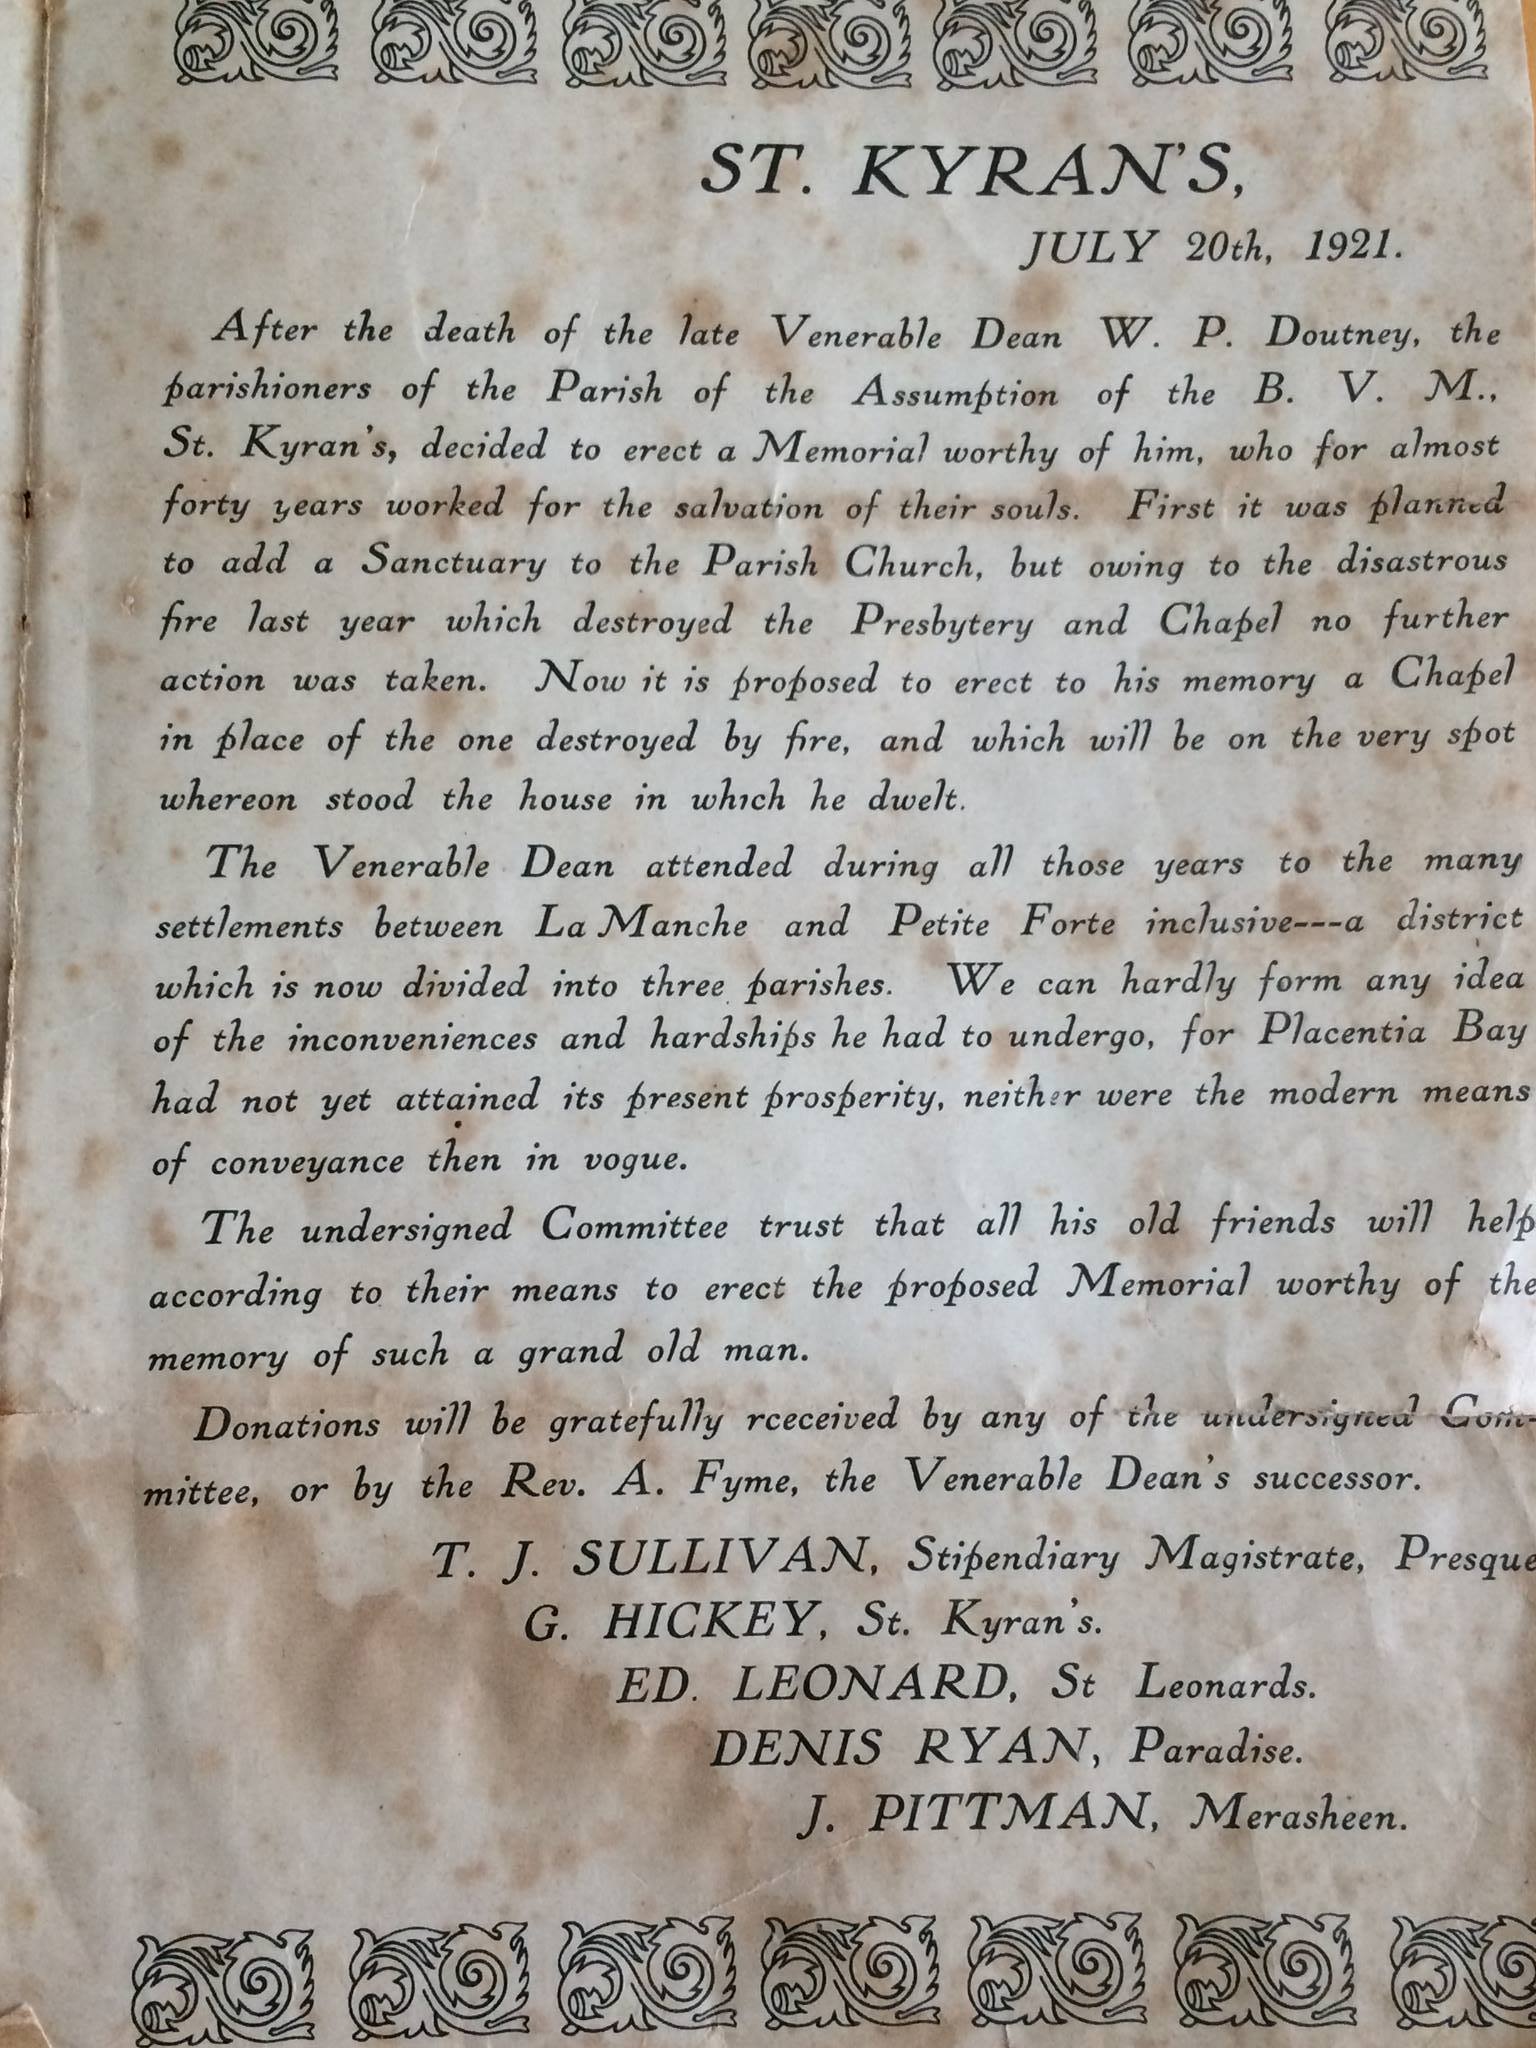 ST. KYRAN'S,
JULY 20th, 1921.
After the death of the late Venerable Dean W. P. Doutney, the
parishioners of the Parish of the Assumption of the B. V. M.,
St. Kyran's, decided to erect a Memorial worthy of him, who for almost
forty years worked for the salvation of their souls. First it was planned
to add a Sanctuary to the Parish Church, but owing to the disastrous
fire last year which destroyed the Presbytery and Chapel no further
action was taken. Now it is proposed to erect to his memory a Chapel
in place of the one destroyed by fire, and which will be on the very spot
whereon stood the house in which he dwelt.
The Venerable Dean attended during all those years to the many
settlements between La Manche and Petite Forte inclusive---a district
which is now divided into three parishes. We can hardly form any idea
of the inconveniences and hardships he had to undergo, for Placentia Bay
had not yet attained its present prosperity, neither were the modern means
of conveyance then in vogue.
The undersigned Committee trust that all his old friends will help
according to their means to erect the proposed Memorial worthy of the
memory of such a grand old man.
Donations will be gratefully rceceived by any of the undersigned Com-
mittee, or by the Rev. A. Fyme, the Venerable Dean's successor.
T. J. SULLIVAN, Stipendiary Magistrate, Presque
G. HICKEY, St. Kyran's.
ED. LEONARD, St Leonards.
DENIS RYAN, Paradise.
J. PITTMAN, Merasheen.